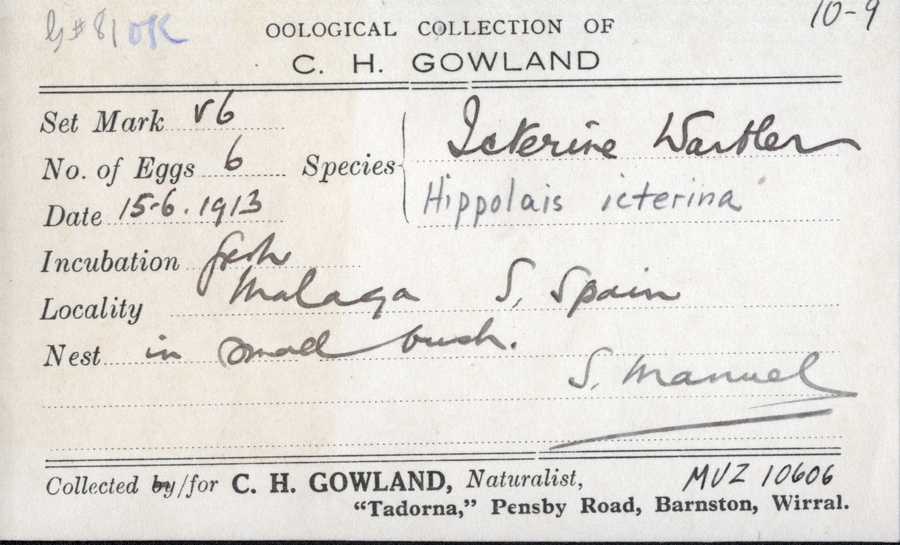 G#81 OK
10-9
OOLOGICAL COLLECTION OF
C. H. GOWLAND
Set Mark v6
No. of Eggs 6
Date 15.6.1913
Species Icterine Warbler
Hippolais icterina
Incubation fresh
Locality Malaga S. Spain
Nest in small bush.
S. Manuel
Collected by/for C. H. GOWLAND, Naturalist,
MUZ 10606
"Tadorna," Pensby Road, Barnston, Wirral.